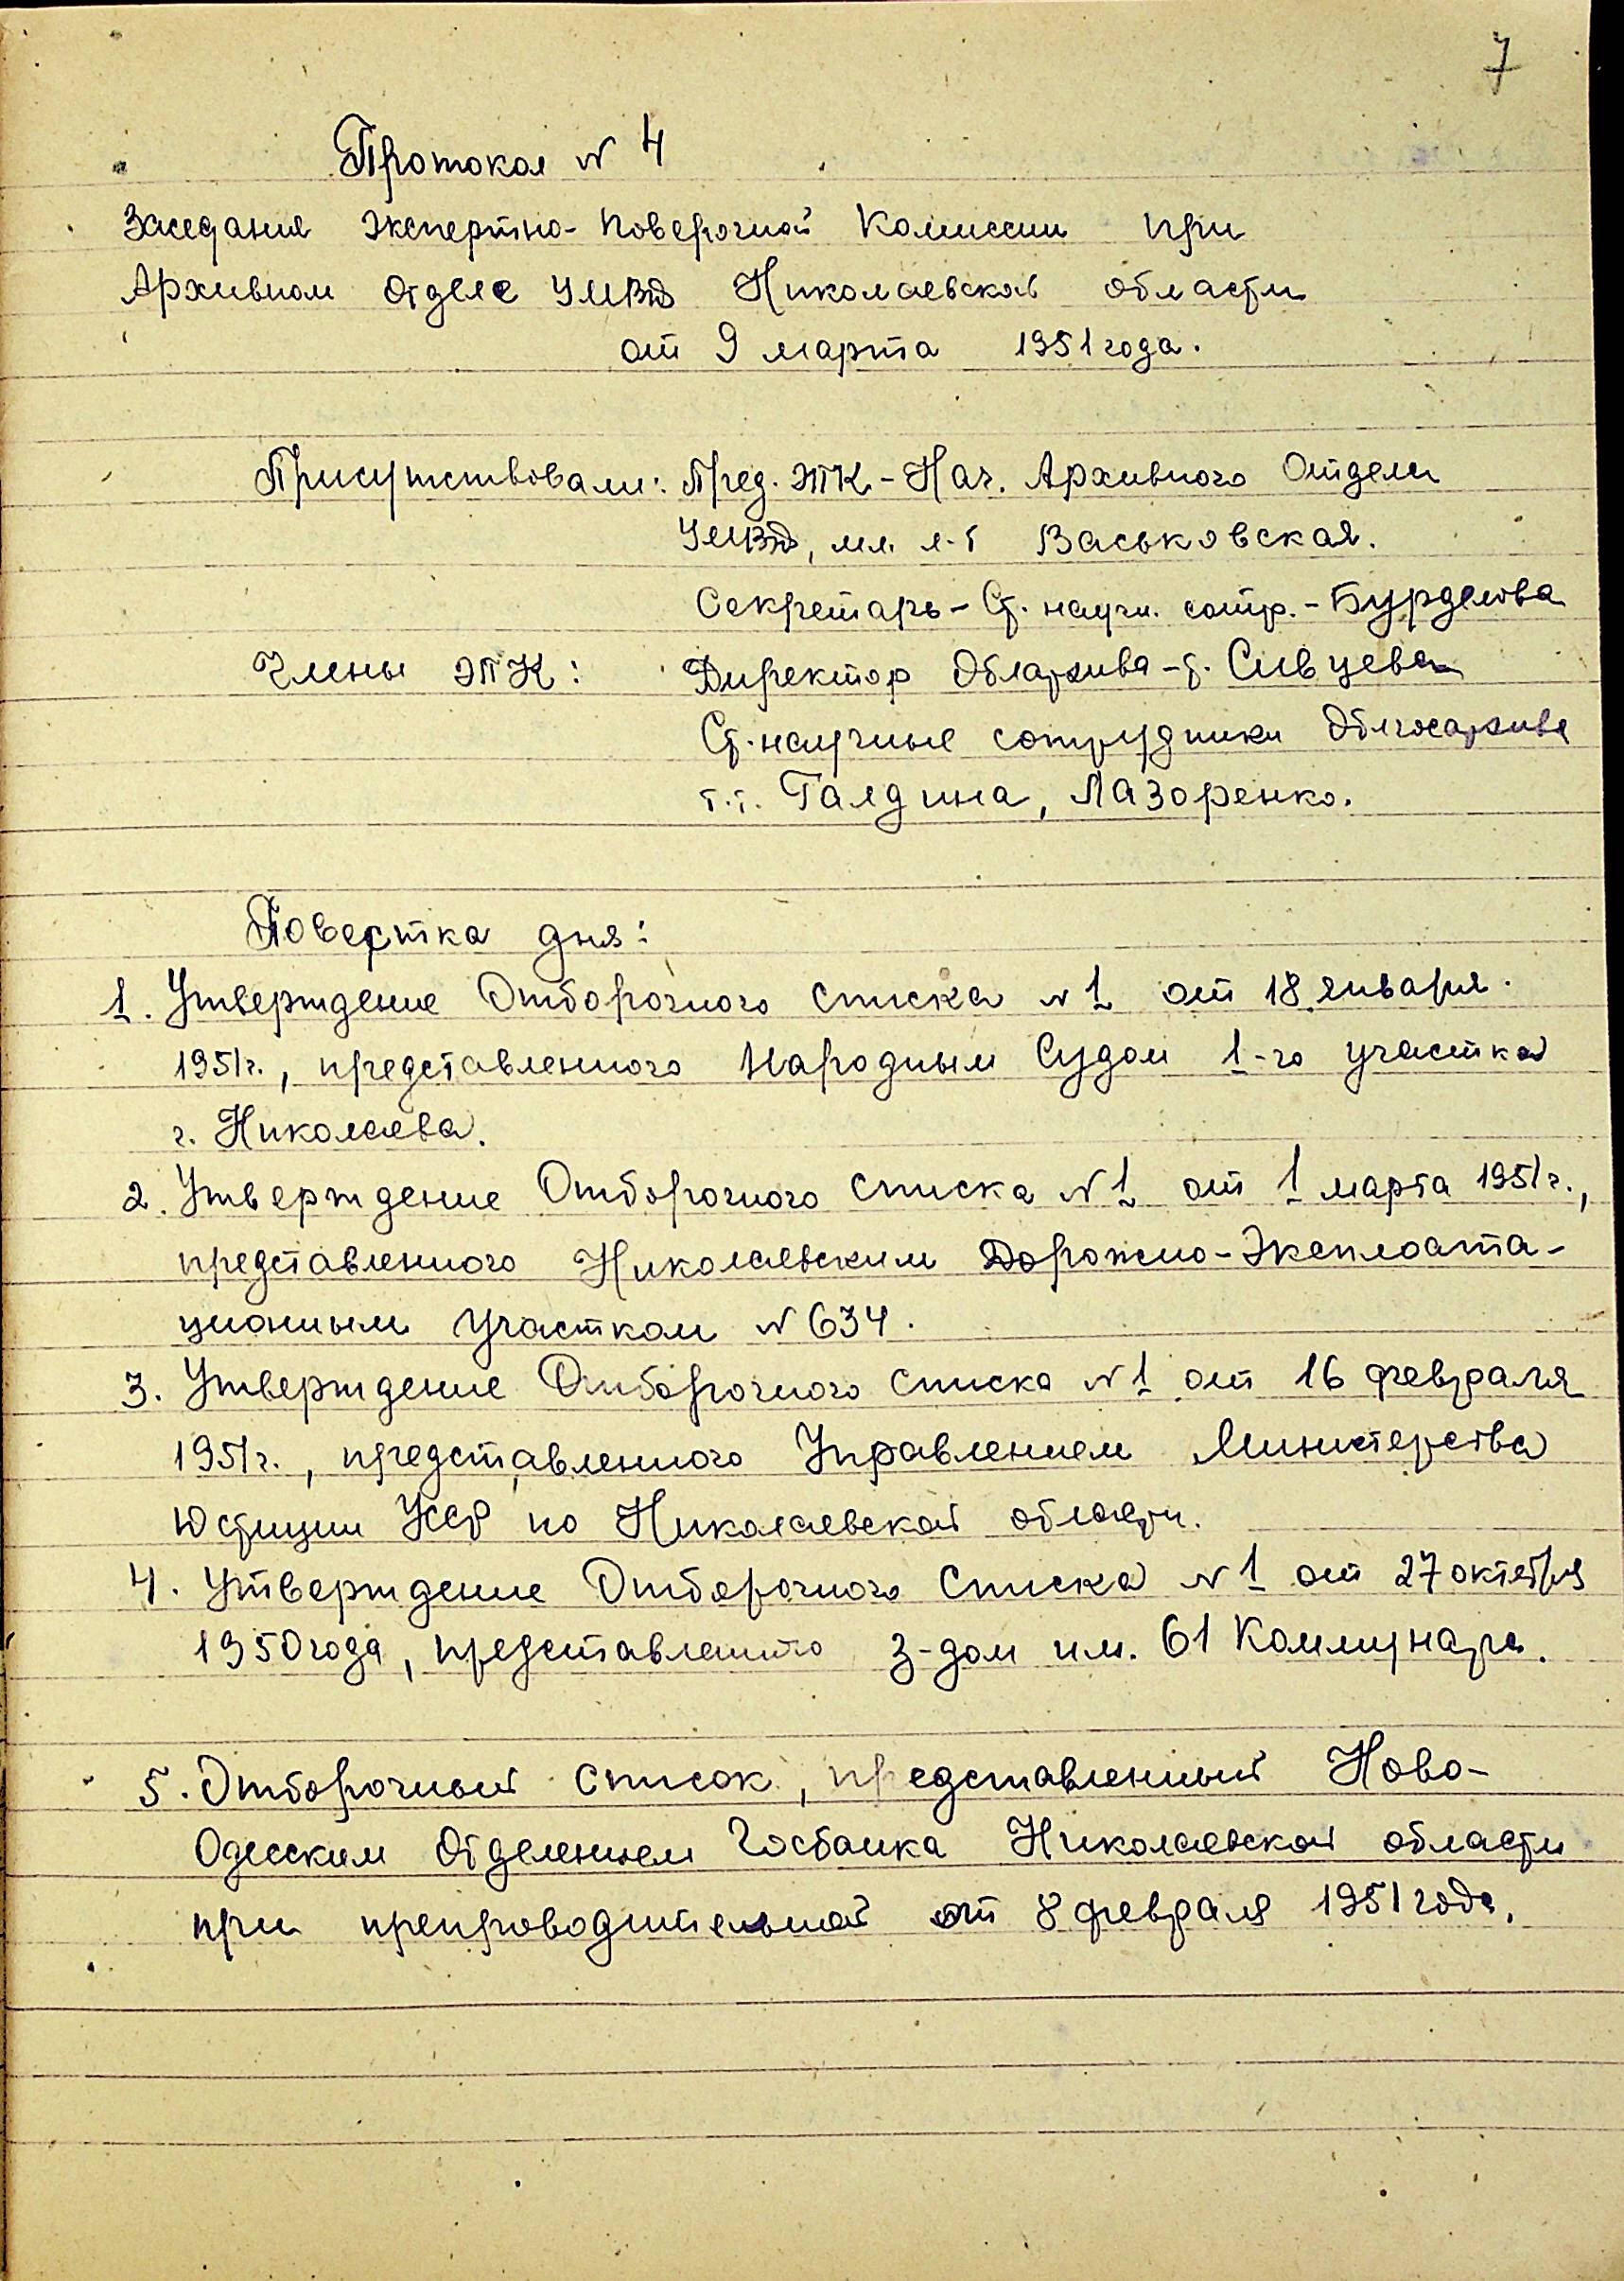 7
Протокол N 4
Заседания Экспертно-Поверочной Комиссии при
Архивном Отделе УМВД Николаевской области
от 9 марта 1951 года.
Присутствовали: Пред. ЭПК - Нач. Архивного Отдела
УМВД, мл. л-т Васьковская.
Секретарь - Ст. научн. сотр. - Бурделова
Члены ЭПК: Директор Облархива - т. Сивцева
Ст. научные сотрудники Облгосархива
т.т. Галдина, Лазоренко.
Повестка дня:
1. Утверждение Отборочного списка N 1 от 18 января
1951г., представленного Народным Судом 1-го участка
г. Николаева.
2. Утверждение Отборочного списка N 1 от 1 марта 1951г.,
представленного Николаевским Дорожно-Эксплоата-
ционным Участком N 634.
3. Утверждение Отборочного списка N 1 от 16 февраля
1951г., представленного Управлением Министерства
Юстиции УССР по Николаевской области.
4. Утверждение Отборочного Списка N 1 от 27 октября
1950 года, представленного з-дом им. 61 Коммунара.
5. Отборочный список, представленный Ново-
Одесским Отделением Госбанка Николаевской области
при препроводительной от 8 февраля 1951 года.